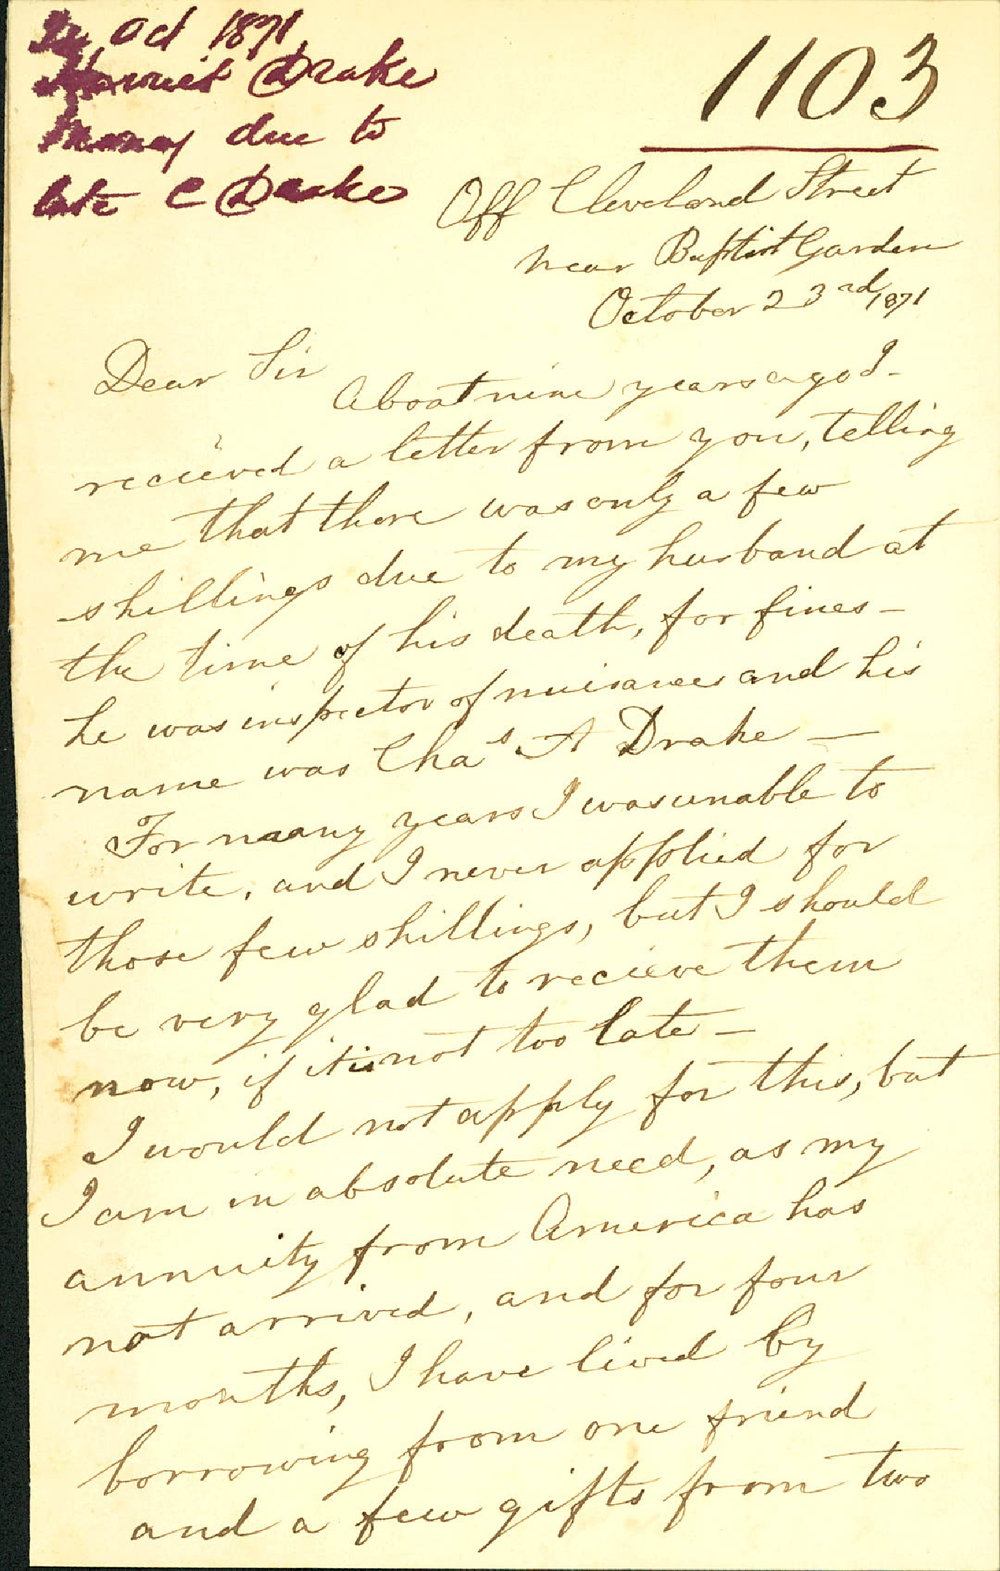 24 Oct 1871
Harriet Drake
money due to
late C Drake
1103
Off Cleveland Street
near Baptist Garden
October 23rd, 1871
Dear Sir
About nine years ago I-
recieved a letter from you, telling
me that there was only a few
shillings due to my husband at
the time of his death, for fines-
he was inspector of nuisances and his
name was Chas A Drake —
For many years I was unable to
write, and I never applied for
those few shillings, but I should
be very glad to recieve them
now, if it is not too late —
I would not apply for this, but
I am in absolute need, as my
annuity from America has
not arrived, and for four
months, I have lived by
borrowing from one friend
and a few gifts from two